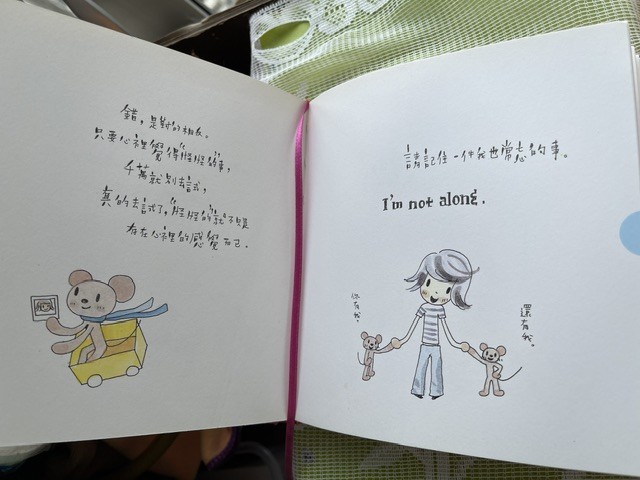 錯，是對的相反。
只要心裡覺得"怪怪"的事，
千萬就別去試，
真的去試了，"怪怪的"就不只是
存在心裡的感覺而已。
請記住一件我也常忘的事。
I'm not alone.
你有我。
還有我。